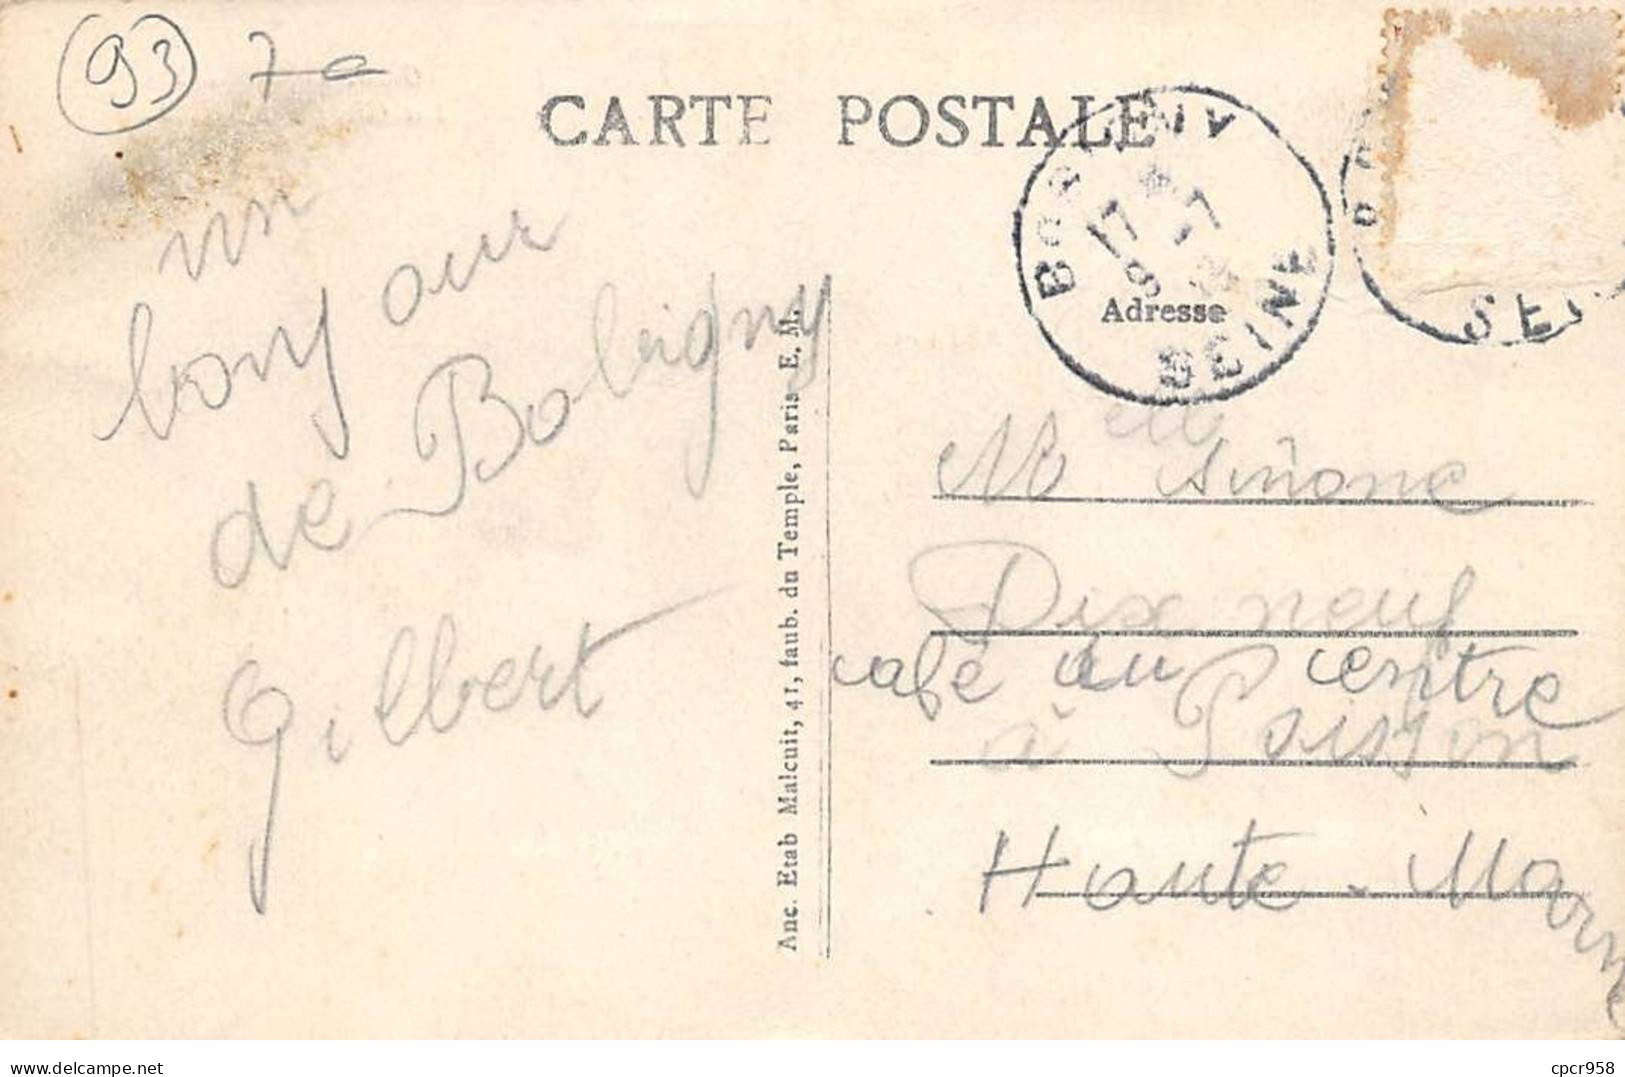 93 7-
CARTE POSTALE
BOBIGNY
17
7
SEINE
SEI
Adresse
un
bonjour
de Bobigny
Gilbert
Anc. Etab Malcuit, 41, faub. du Temple, Paris E. M.
Melle Simone
Dix neuf
café du centre
à Poisson
Haute-Marne
delcampe.net
cpcr958